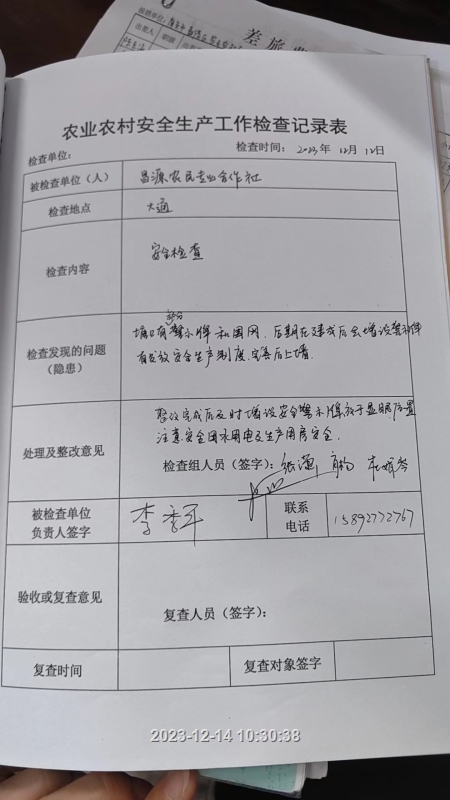 差旅费
农业农村安全生产工作检查记录表
检查单位：
检查时间：2023年 12月 12日
被检查单位（人）
昌源农民专业合作社
检查地点
大通
检查内容
安全检查
检查发现的问题
（隐患）
部分
塘口有警示牌和围网．后期在建成后会增设警示牌
有成放安全生产制度．完善后上墙．
处理及整改意见
整改完成后及时增设安全警示牌放于显眼位置
注意安全用水用电及生产用房安全．
检查组人员（签字）：张
被检查单位
负责人签字
李秀平
联系
电话
15892772767
验收或复查意见
复查人员（签字）：
复查时间
复查对象签字
2023-12-14 10:30:38